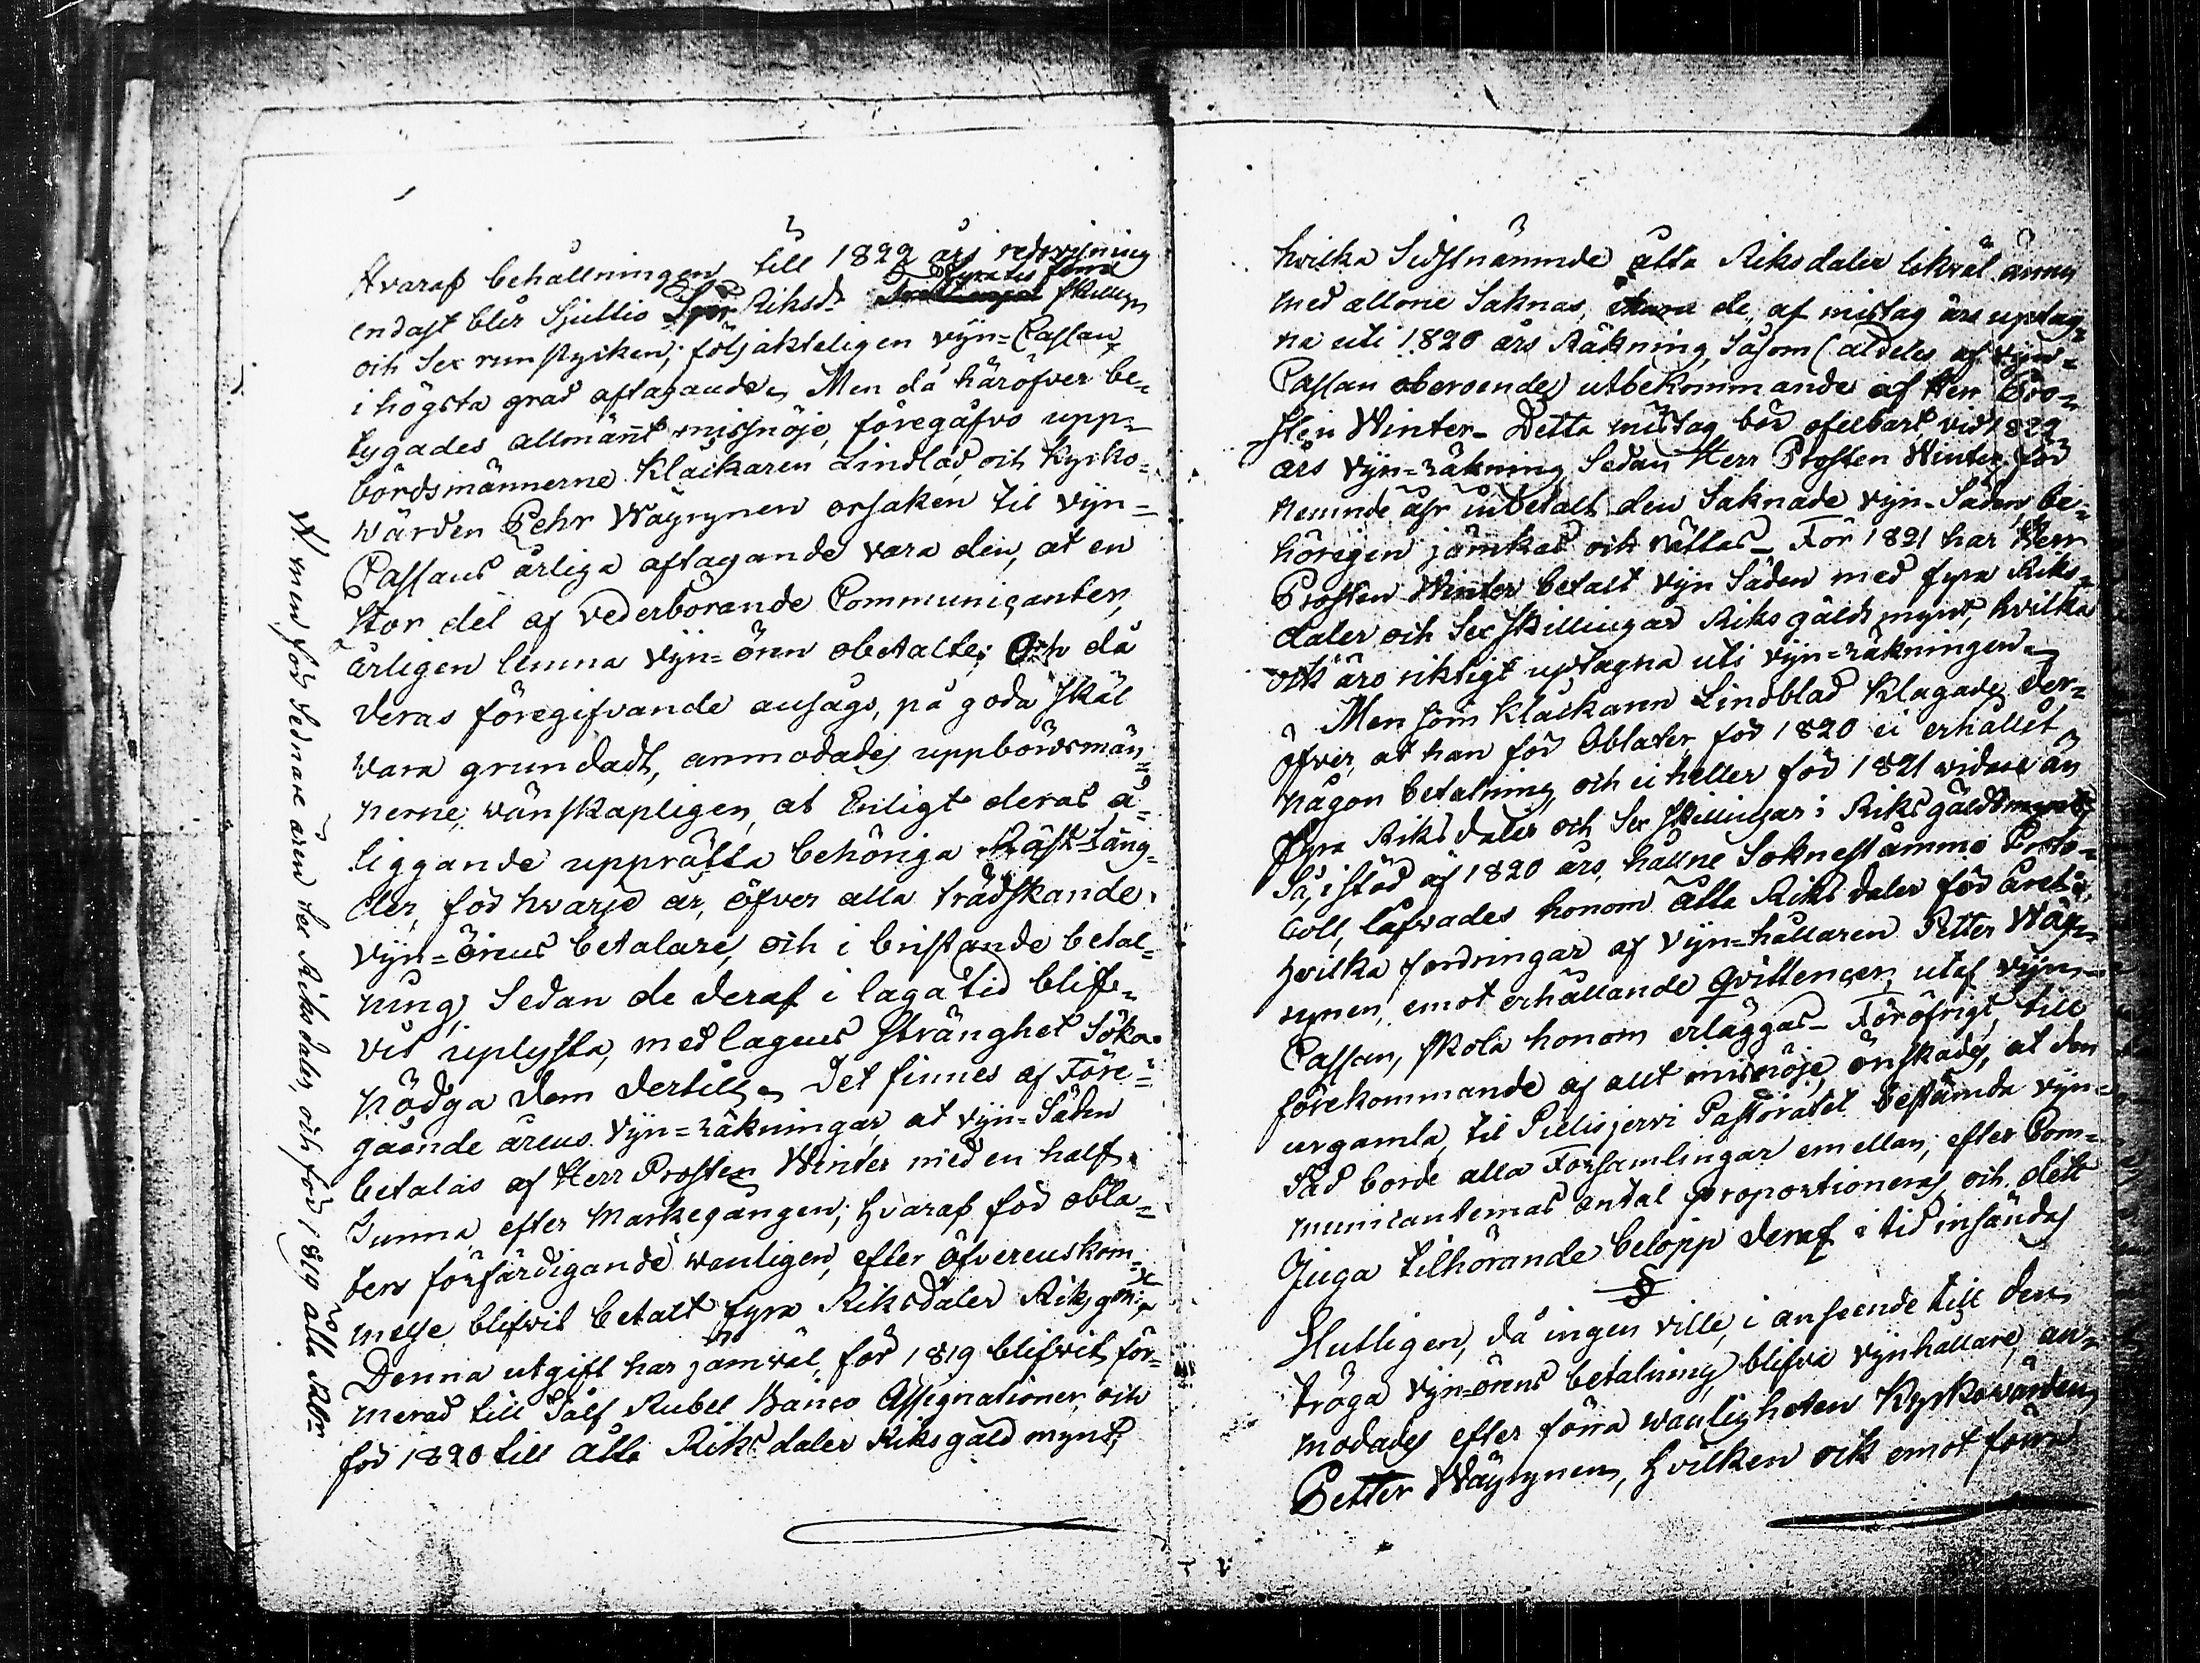 Hvaraf behållningen till 1822 års redovisning
endast blir Sjuttio Riksd. fyratio femma skilling
och Sex runstycken; följakteligen vijn=Cassan,
i högsta grad aftagande. Men då häröfver be=
tygades allmänt missnöje, föregåfvo upp=
bördsmännerne Klåckaren Lindblad, och Kyrko=
wärden Pehr Wäyrynen orsaken til vijn=
Cassans årliga aftagande vara den, at en
stor del af vederbörande Communicanter,
årligen lemna vijn=örun obetalte; Och då
deras föregifvande ansågs, på goda skäl
vara grundadt, anmodades uppbördsmän=
nerne, wänskapligen, at Enligt deras å=
liggande upprätta behöriga Räst=Läng=
der, för hvarje år, öfver alla trädskande
vijn=örens betalare, och i bristande betal=
ning, Sedan de deraf i laga tid blif=
vit uplysta, med lagens stränghet Söka
nödga dem dertill. Det finnes af Före=
gående årens vijn=räkningar, at vijn=Säden
betalas af Herr Prosten Winter med en half
Tunna efter Markegången; Hvaraf för obla=
ters förfärdigande wanligen, efter öfverenskom=
melse blifvit betalt fyra Riksdaler Riksg. m:t
Denna utgift har jämväl, för 1819 blifvit för=
merad till Tålf Rubel Banco Assignationer, och
för 1820 till Åtta Riksdaler Riksgäld mynt;
N. men för Sednare åren ter Riksdaler, och för 1819 åtta Rdr.
hvilka Sidstnämnde åtta Riksdaler likväl ännu
med allone Saknas, de, af mistag äro uptag=
na uti 1820 års Räkning, Såsom (aldeles af vijn=
Cassan oberoende) utbekommande af Herr Pro=
sten Winter. Detta mistag bör ofelbart vid 1822
års vijn=räkning, Sedan Herr Prosten Winter för
nemnde åhr inbetalt den Saknade vijn=Säden, be=
hörigen jämkas och rättas. För 1821 har Herr
Prosten Winter betalt vijn Säden med fyra Riks=
daler och Sex skillingar Riksgälds mynt, hvilka
ock äro riktigt uptagna uti vijn=räkningen.
Men som Klåckaren Lindblad Klagade der=
öfver, at han för Oblater för 1820 ei erhållit
någon betalning, och ei heller för 1821 widare än
fyra Riksdaler och Sex skillingar i Riksgäldsmynt;
Så, i stöd af 1820 års, hållne Sokneståmmo Proto=
coll, låfwades honom åtta Riksdaler för året,
hvilka fordringar af vijn=hållaren Petter Wäy=
rynen, emot erhållande Qvittencer, utaf vijn=
Cassan, skola honom erläggas. Föröfrigt, till
förekommande af allt misnöje, önskades, at den
urgamla, til Pielisjervi Pastoratet bestämda vijn=
Säd borde alla Församlingar emellan, efter Com=
municanternas antal proportioneras, och dett
Juga tilhörande belopp deraf i tid insändas
§
Slutligen, då ingen ville, i anseende till den
tröga vijn=örens betalning, blifva vijnhållare, an=
modades efter förra wanligheten Kyrkowärden
Petter Wäyrynen, hvilken ock emot förra